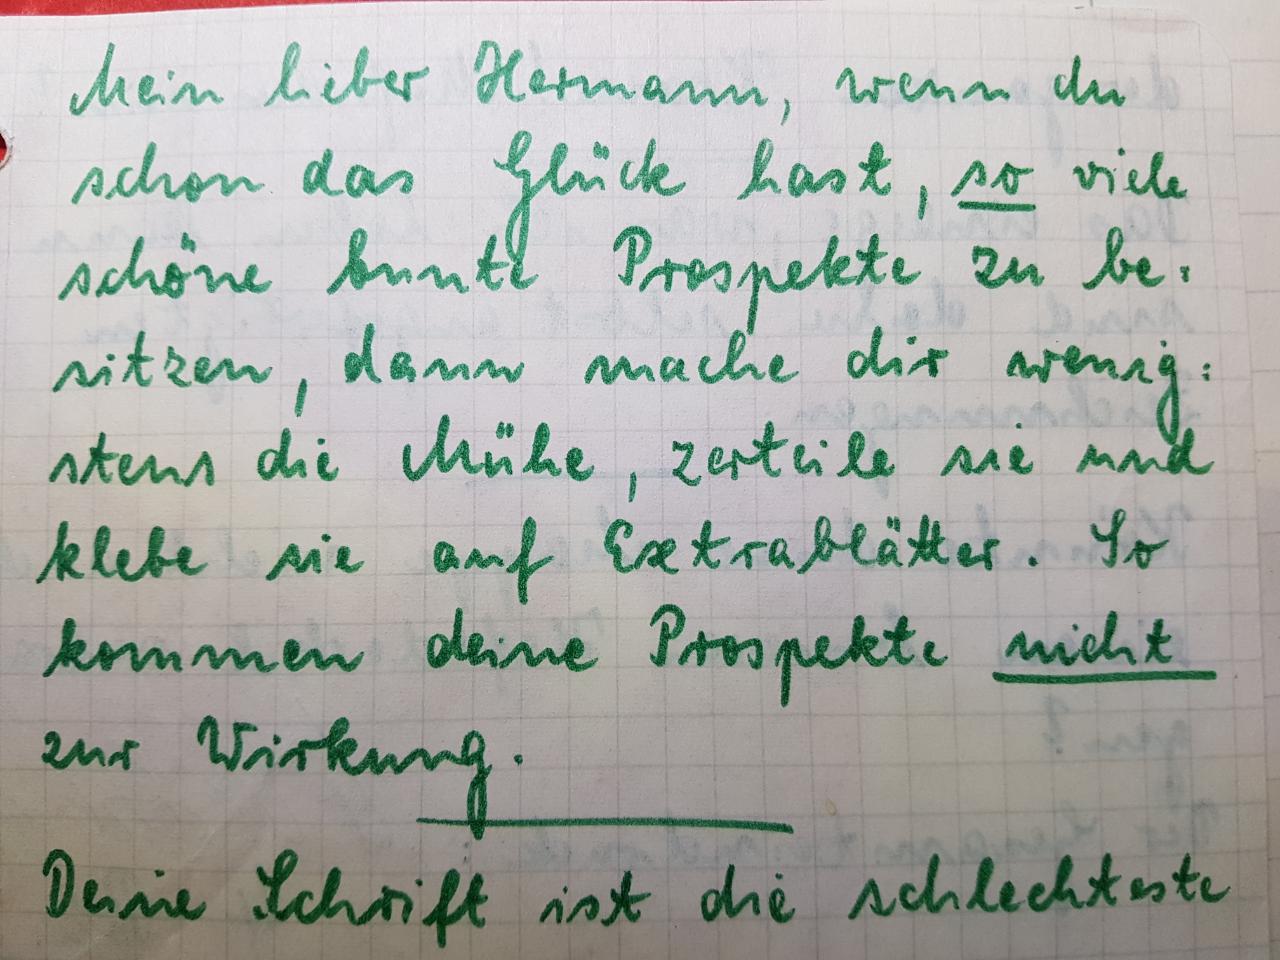 Mein lieber Hermann, wenn du
schon das Glück hast, so viele
schöne bunte Prospekte zu be:
sitzen, dann mache dir wenig:
stens die Mühe, zerteile sie und
klebe sie auf Extrablätter. So
kommen deine Prospekte nicht
zur Wirkung.
Deine Schrift ist die schlechteste